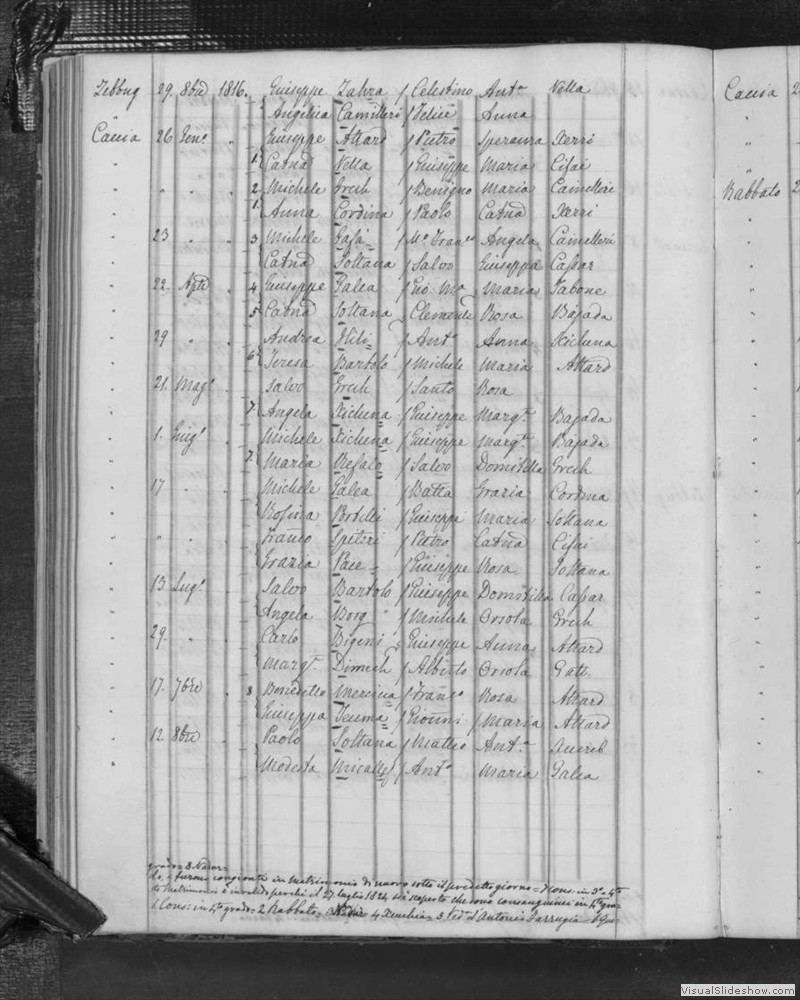 Zebbug 29. 8bre 1816. Giuseppe Zahra / Celestino Ant.a Vella
" Angelica Camilleri / Felice Anna
Caccia 26 Gen.o " Giuseppe Attard / Pietro Speranza Xerri
" 1 Catna Vella / Giuseppe Maria Cifai
" " " " 2 Michele Grech / Benigno Maria Camilleri
" 1 Anna Cordina / Paolo Catna Xerri
" 23 " " 3 Michele / Angela Camilleri
" Catna Soltana / Salvo Giuseppa Cassar
" 22. " 4 Giuseppe Galea / Gio Ma Maria Tabone
" 5 Catna Soltana Clemente Rosa Bajada
" 29 " " Andrea / Ant.o Anna Xichena
" 6 Teresa Bartolo / Michele Maria Attard
" 21. Mag.o " Salvo Grech / Santo Rosa
" 7. Angela Xichena / Giuseppe Marg.ta Bajada
" 1. Giug.o " Michele Xichena / Giuseppe Marg.ta Bajada
" 7. Maria Refalo / Salvo Domitilla Grech
" 17 " " Michele Galea / Batta Grazia Cordina
" Rosina Portelli / Giuseppe Maria Soltana
" " " " Franco Spiteri / Pietro Catna Cifai
" Grazia Pace / Giuseppe Rosa Soltana
" 13 Lug.o " Salvo Bartolo / Giuseppe Domitilla Cassar
" Angela Borg / Michele Orsola Grech
" 29. " " Carlo Bigeni Giuseppe Anna Attard
" Marg.ta Dimech / Alberto Orsola Gatt.
" 17. 7bre " 8 Benedetto Mercieca / Fran.co Rosa Attard
" Giuseppa Teuma / Gioanni / Maria Attard
" 12. 8bre " Paolo Soltana / Matteo Ant.a
" Modesta Micallef / Ant.o Maria Galea
Caccia 2
Rabbato 2
furono congionti in matrimonio di nuovo sotto il predetto giorno = 7 Cons: in 3° e 4to
matrimonio è invalido perchè il 27 luglio 1824 si è scoperto che sono consanguinei in 4to gra=
1 Cons: in 4to grado = 2 Rabbato = 4 Xeuchia = 5 Ved.a d'Antonio Farrugia =
VisualSlideshow.com